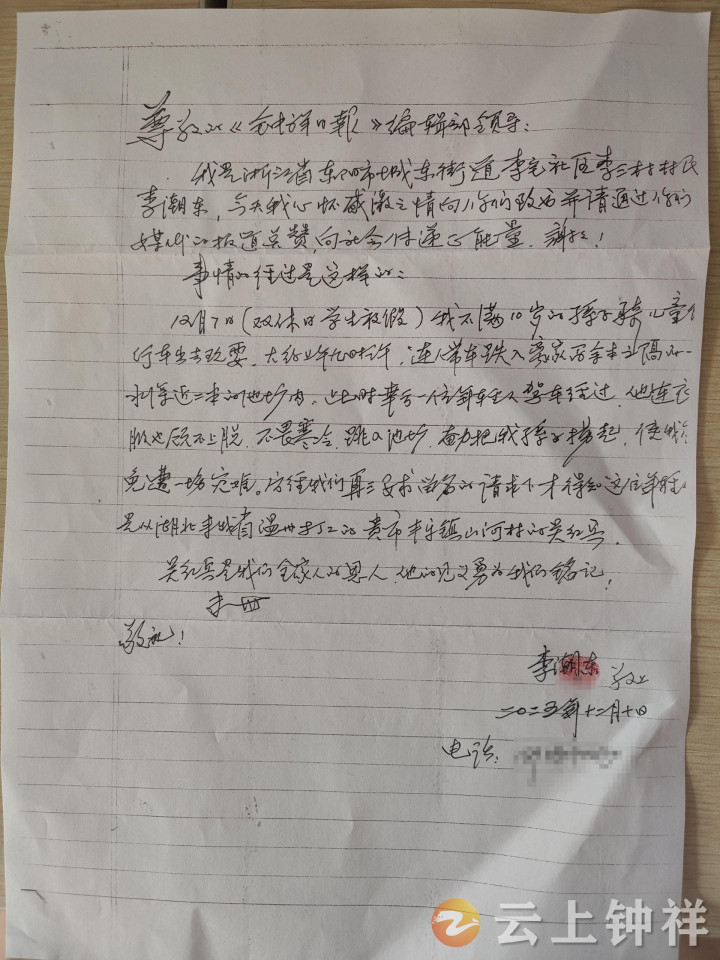 尊敬的《钟祥日报》编辑部领导:
我是浙江省东阳市城东街道李宅社区李三村村民
李潮东,今天我心怀感激之情向你们致函并请通过你们
媒体的报道点赞,向社会传递正能量.谢谢!
事情的经过是这样的:
12月7日(双休日学生放假)我不满10岁的孙子骑儿童自
行车出去玩耍.大约上午九时许,连人带车跌入离家
水深近二米的池塘内,此时幸亏一位年轻人驾车经过.他连衣
服也顾不上脱.不畏寒冷,跳入池塘,奋力把我孙子救起,使我
免遭一场灾难。后经我们再三要求留名的请求下才得知这位年轻
是从湖北来 温州打工的贵市丰乐镇山河村的吴红兵.
吴红兵是我们全家人的恩人.他的见义勇为我们铭记!
敬礼!
李潮东 敬上
二〇二五年十二月十日
电话:
云上钟祥